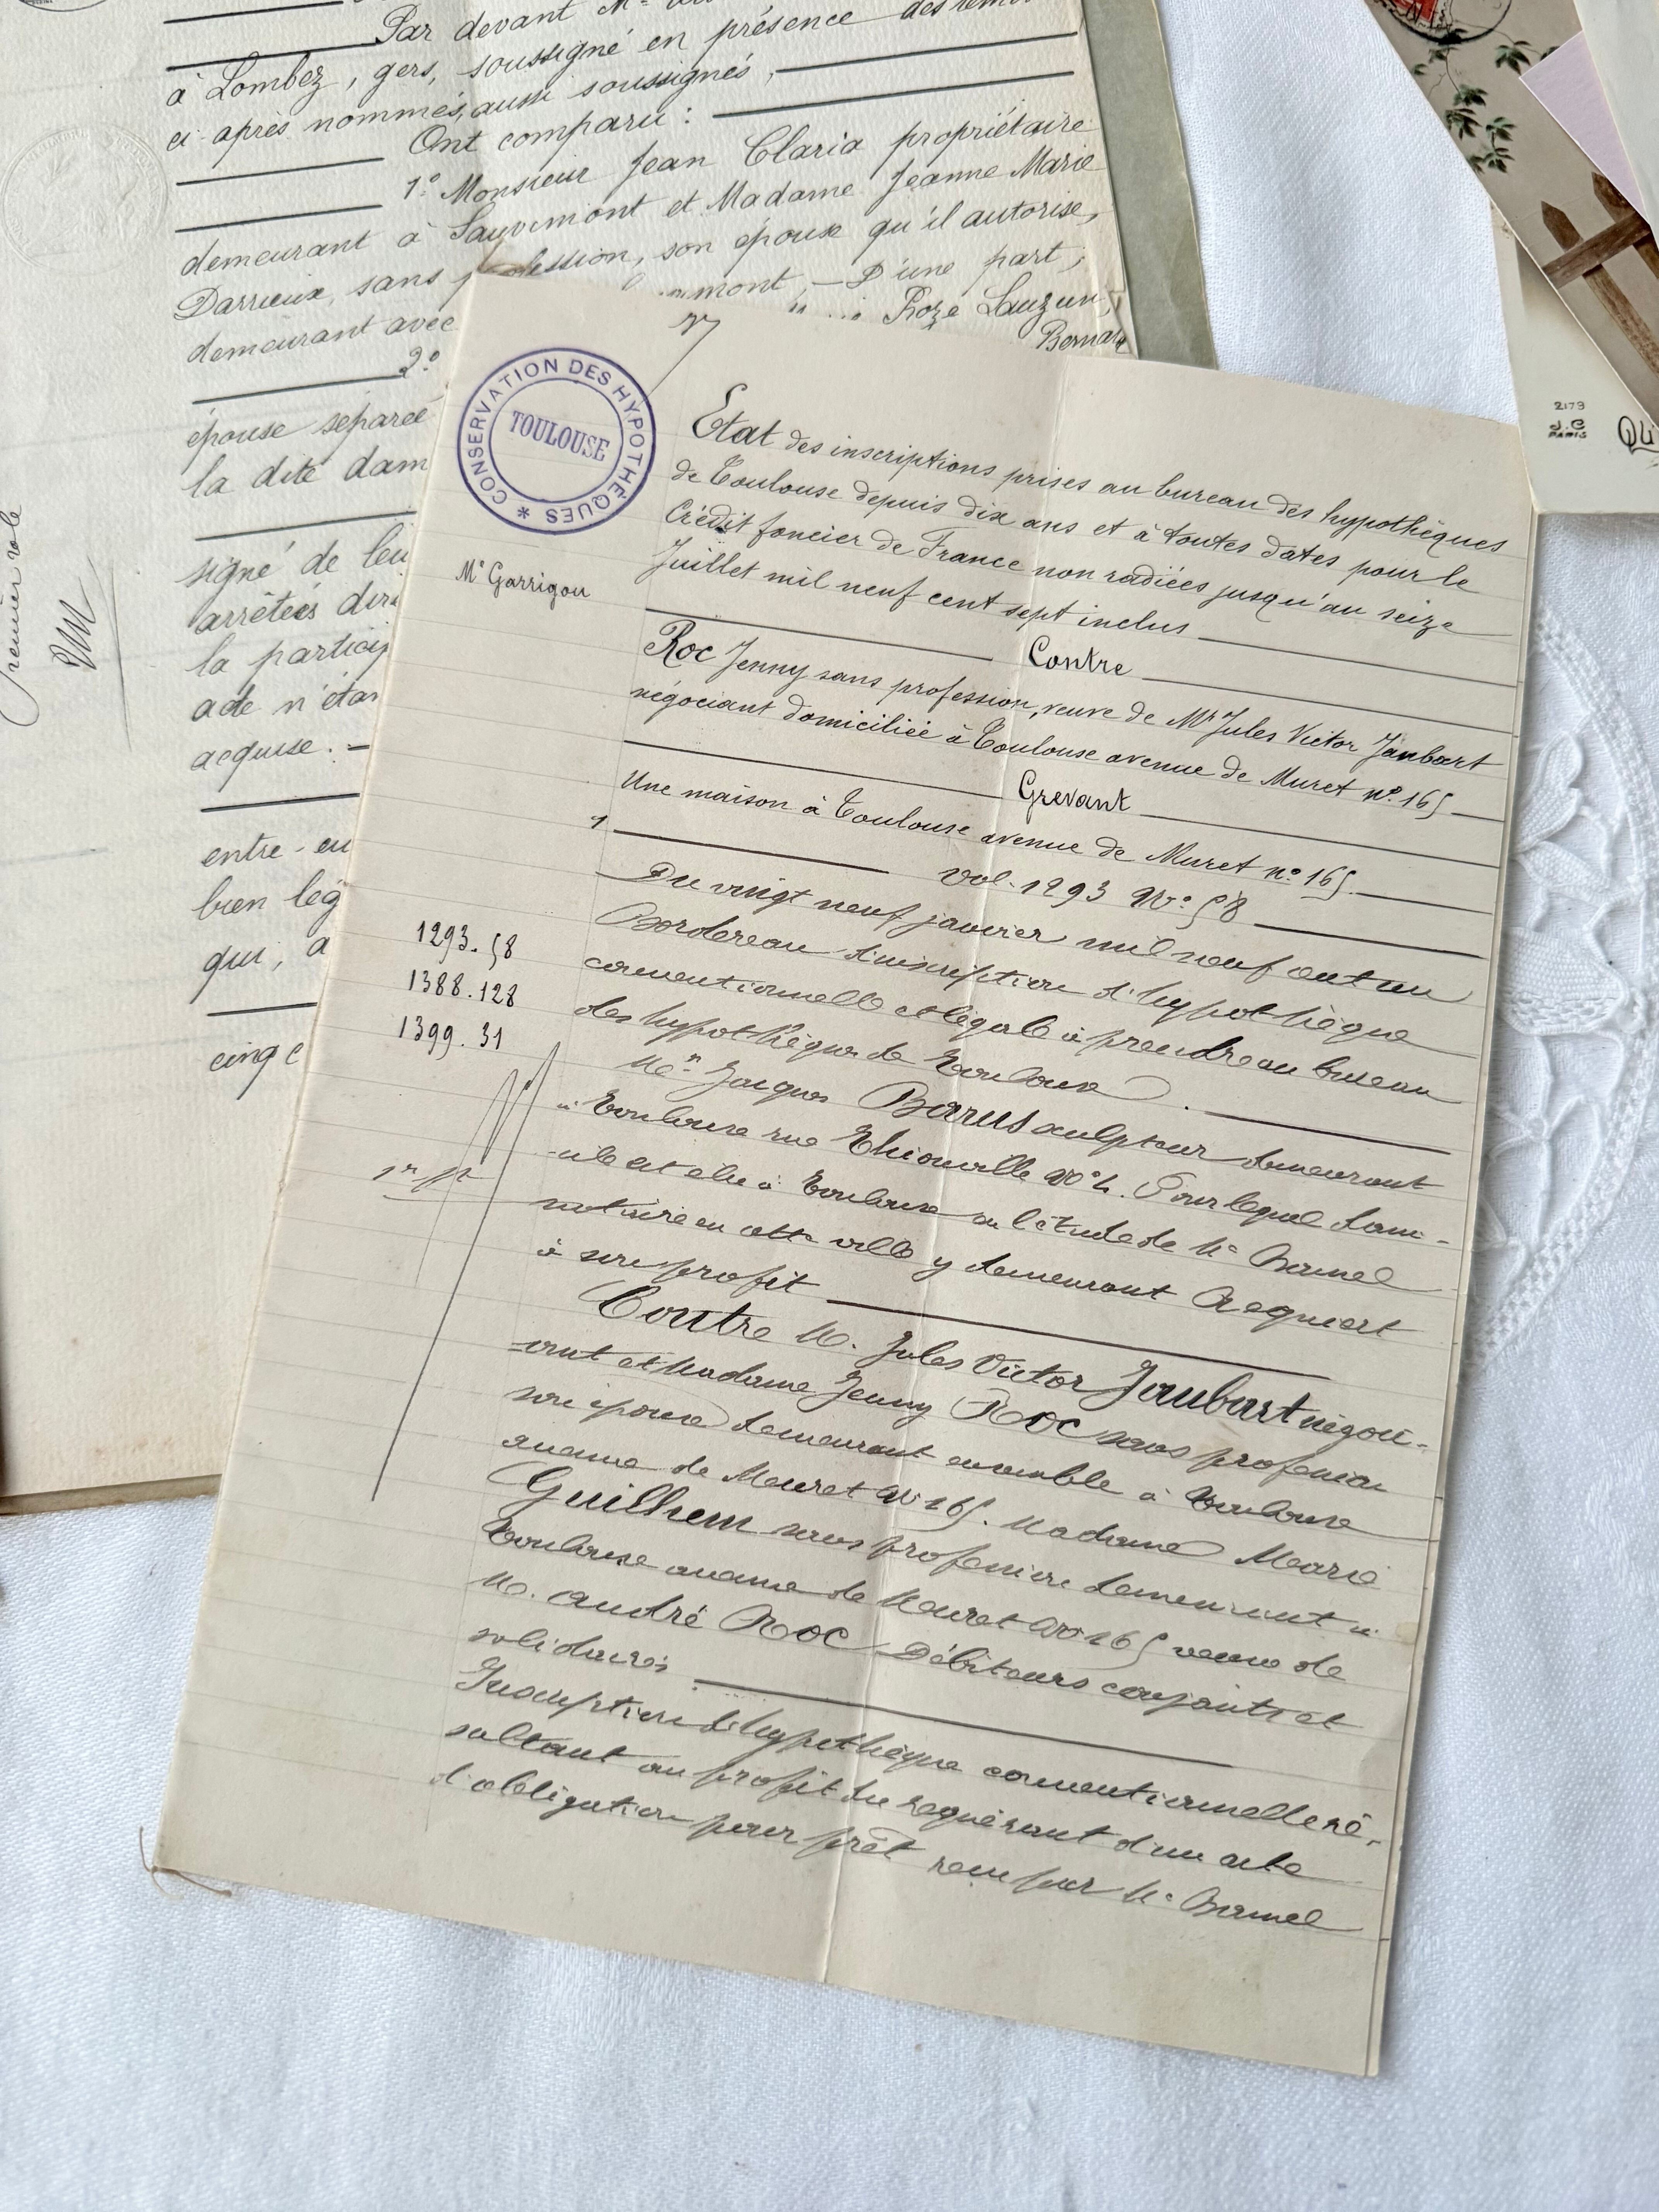 Par devant Mᵉ
à Lombez, gers, soussigné en présence des témoi
ci-après nommés, aussi soussignés,
Ont comparu :
1º Monsieur Jean Claria propriétaire
demeurant à Sauvimont et Madame Jeanne Marie
Darrieux, sans profession, son épouse qu'il autorise,
demeurant avec mont, – D'une part ;
2º Roze Lauzun,
Bernard
épouse séparée
la dite dam
signé de leu
arrêtées dir
la particip
acte n'étan
acquise. –
entre-eu
bien lég
qui, a
cinq c
premier role
CONSERVATION DES HYPOTHÈQUES *
TOULOUSE
Mᵉ Garrigou
Etat des inscriptions prises au bureau des hypothèques
de Toulouse depuis dix ans et à toutes dates pour le
Crédit foncier de France non radiées jusqu'au seize
Juillet mil neuf cent sept inclus
Contre
Roc Jenny sans profession, veuve de Mʳ Jules Victor Jaubart
négociant domiciliée à Toulouse avenue de Muret nº. 165
Grevant
Une maison à Toulouse avenue de Muret nº 165.
1
Vol. 1293 Nº 58
Du vingt neuf janvier mil neuf cent un
Bordereau d'inscription d'hypothèque
conventionnelle et légale à prendre au bureau
des hypothèques de Toulouse.
1293. 58
1388. 128
1399. 31
Mʳ Jacques Barus sculpteur demeurant
à Toulouse rue Thionville Nº 4. Pour lequel domi-
-cile est élu à Toulouse en l'étude de Mᵉ Bamel
notaire en cette ville y demeurant Requiert
à son profit
Contre M. Jules Victor Jaubart négoci-
=ant et Madame Jenny Roc sans profession
son épouse demeurant ensemble à Toulouse
avenue de Muret Nº 165. Madame Marie
Guilhem sans profession demeurant à
Toulouse avenue de Muret Nº 165 veuve de
M. André Roc Débiteurs conjoints et
solidaires
Inscription d'hypothèque conventionnelle ré-
sultant au profit du requérant d'un acte
d'obligation pour prêt reçu par Mᵉ Bamel
2179
J.C
PARIS
QU